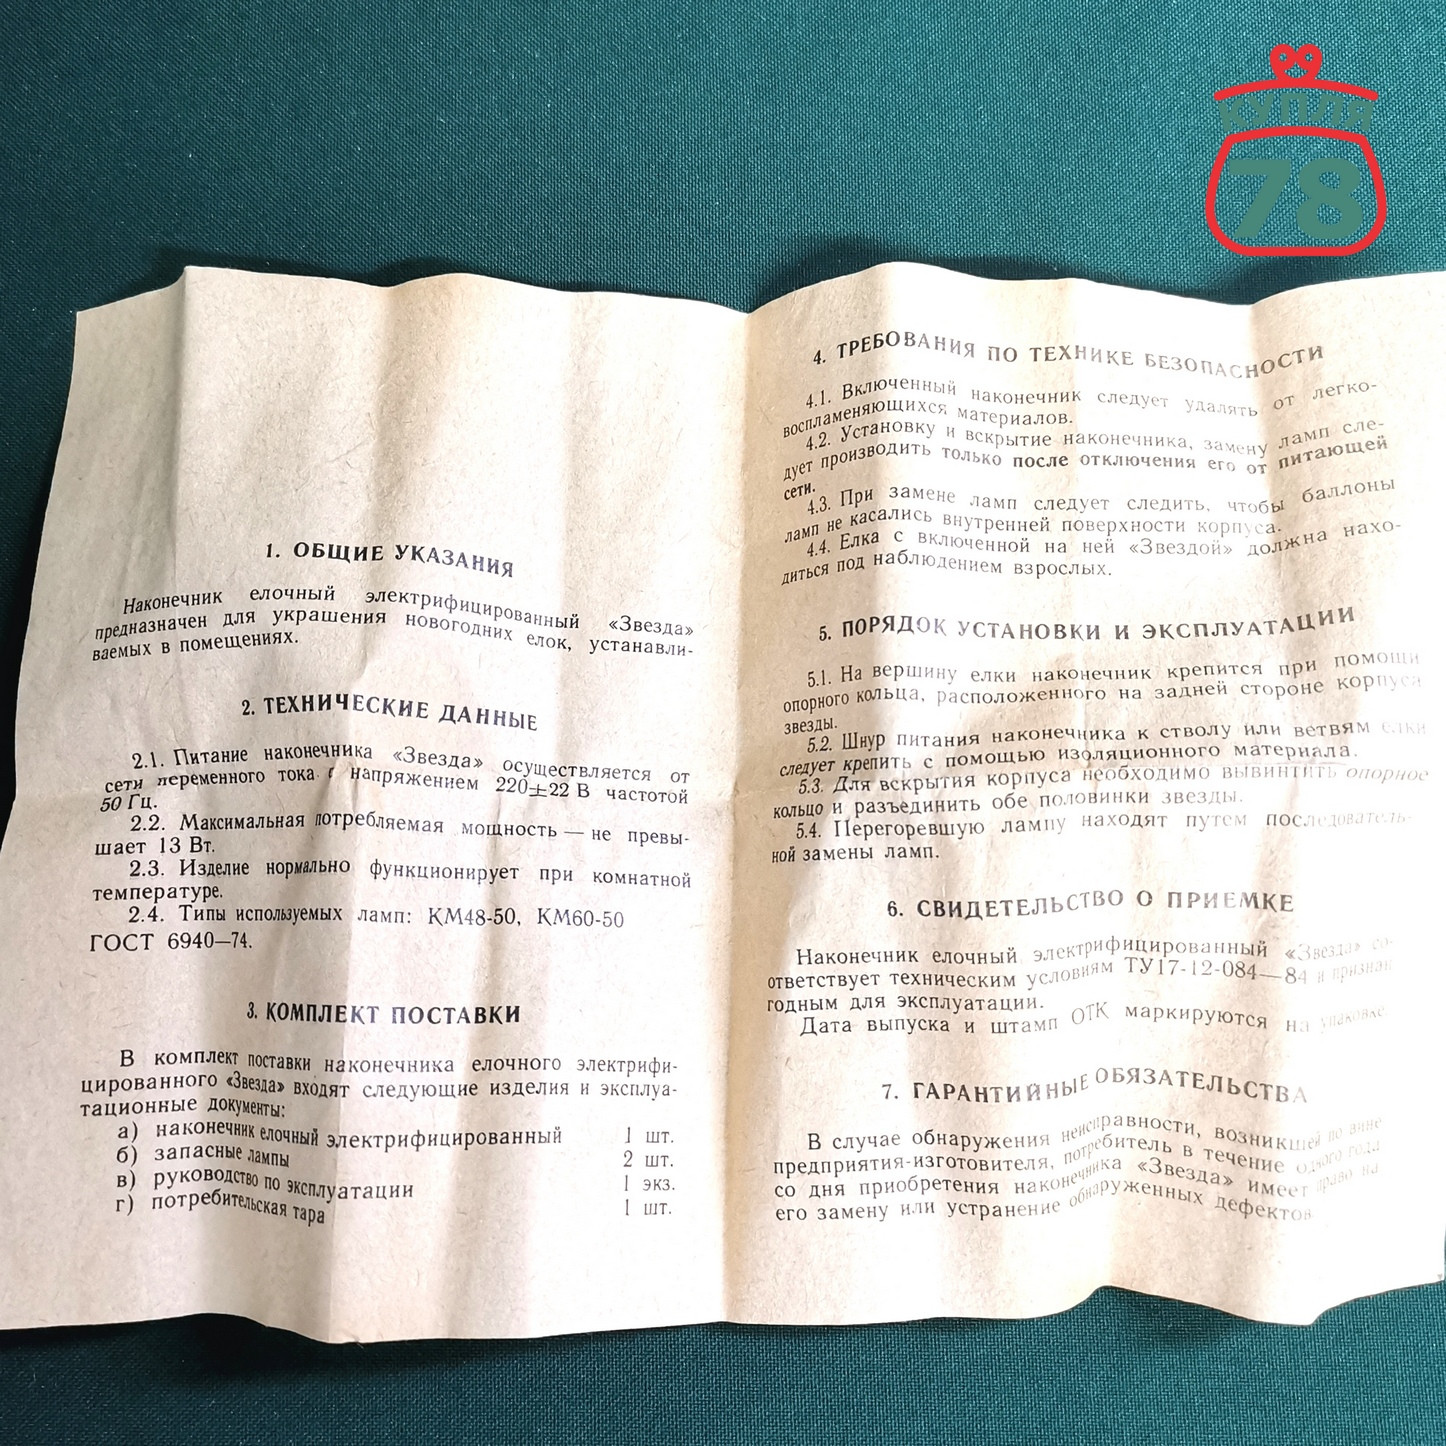 КУПЛЯ
78
1. ОБЩИЕ УКАЗАНИЯ
Наконечник елочный электрифицированный «Звезда»
предназначен для украшения новогодних елок, устанавли-
ваемых в помещениях.
2. ТЕХНИЧЕСКИЕ ДАННЫЕ
2.1. Питание наконечника «Звезда» осуществляется от
сети переменного тока с напряжением 220±22 В частотой
50 Гц.
2.2. Максимальная потребляемая мощность — не превы-
шает 13 Вт.
2.3. Изделие нормально функционирует при комнатной
температуре.
2.4. Типы используемых ламп: КМ48-50, КМ60-50
ГОСТ 6940—74.
3. КОМПЛЕКТ ПОСТАВКИ
В комплект поставки наконечника елочного электрифи-
цированного «Звезда» входят следующие изделия и эксплуа-
тационные документы:
а) наконечник елочный электрифицированный 1 шт.
б) запасные лампы 2 шт.
в) руководство по эксплуатации 1 экз.
г) потребительская тара 1 шт.
4. ТРЕБОВАНИЯ ПО ТЕХНИКЕ БЕЗОПАСНОСТИ
4.1. Включенный наконечник следует удалять от легко-
воспламеняющихся материалов.
4.2. Установку и вскрытие наконечника, замену ламп сле-
дует производить только после отключения его от питающей
сети.
4.3. При замене ламп следует следить, чтобы баллоны
ламп не касались внутренней поверхности корпуса.
4.4. Елка с включенной на ней «Звездой» должна нахо-
диться под наблюдением взрослых.
5. ПОРЯДОК УСТАНОВКИ И ЭКСПЛУАТАЦИИ
5.1. На вершину елки наконечник крепится при помощи
опорного кольца, расположенного на задней стороне корпуса
звезды.
5.2. Шнур питания наконечника к стволу или ветвям елки
следует крепить с помощью изоляционного материала.
5.3. Для вскрытия корпуса необходимо вывинтить опорное
кольцо и разъединить обе половинки звезды.
5.4. Перегоревшую лампу находят путем последователь-
ной замены ламп.
6. СВИДЕТЕЛЬСТВО О ПРИЕМКЕ
Наконечник елочный электрифицированный «Звезда» со-
ответствует техническим условиям ТУ17-12-084—84 и признан
годным для эксплуатации.
Дата выпуска и штамп ОТК маркируются на упаковке.
7. ГАРАНТИЙНЫЕ ОБЯЗАТЕЛЬСТВА
В случае обнаружения неисправности, возникшей по вине
предприятия-изготовителя, потребитель в течение одного года
со дня приобретения наконечника «Звезда» имеет право на
его замену или устранение обнаруженных дефектов